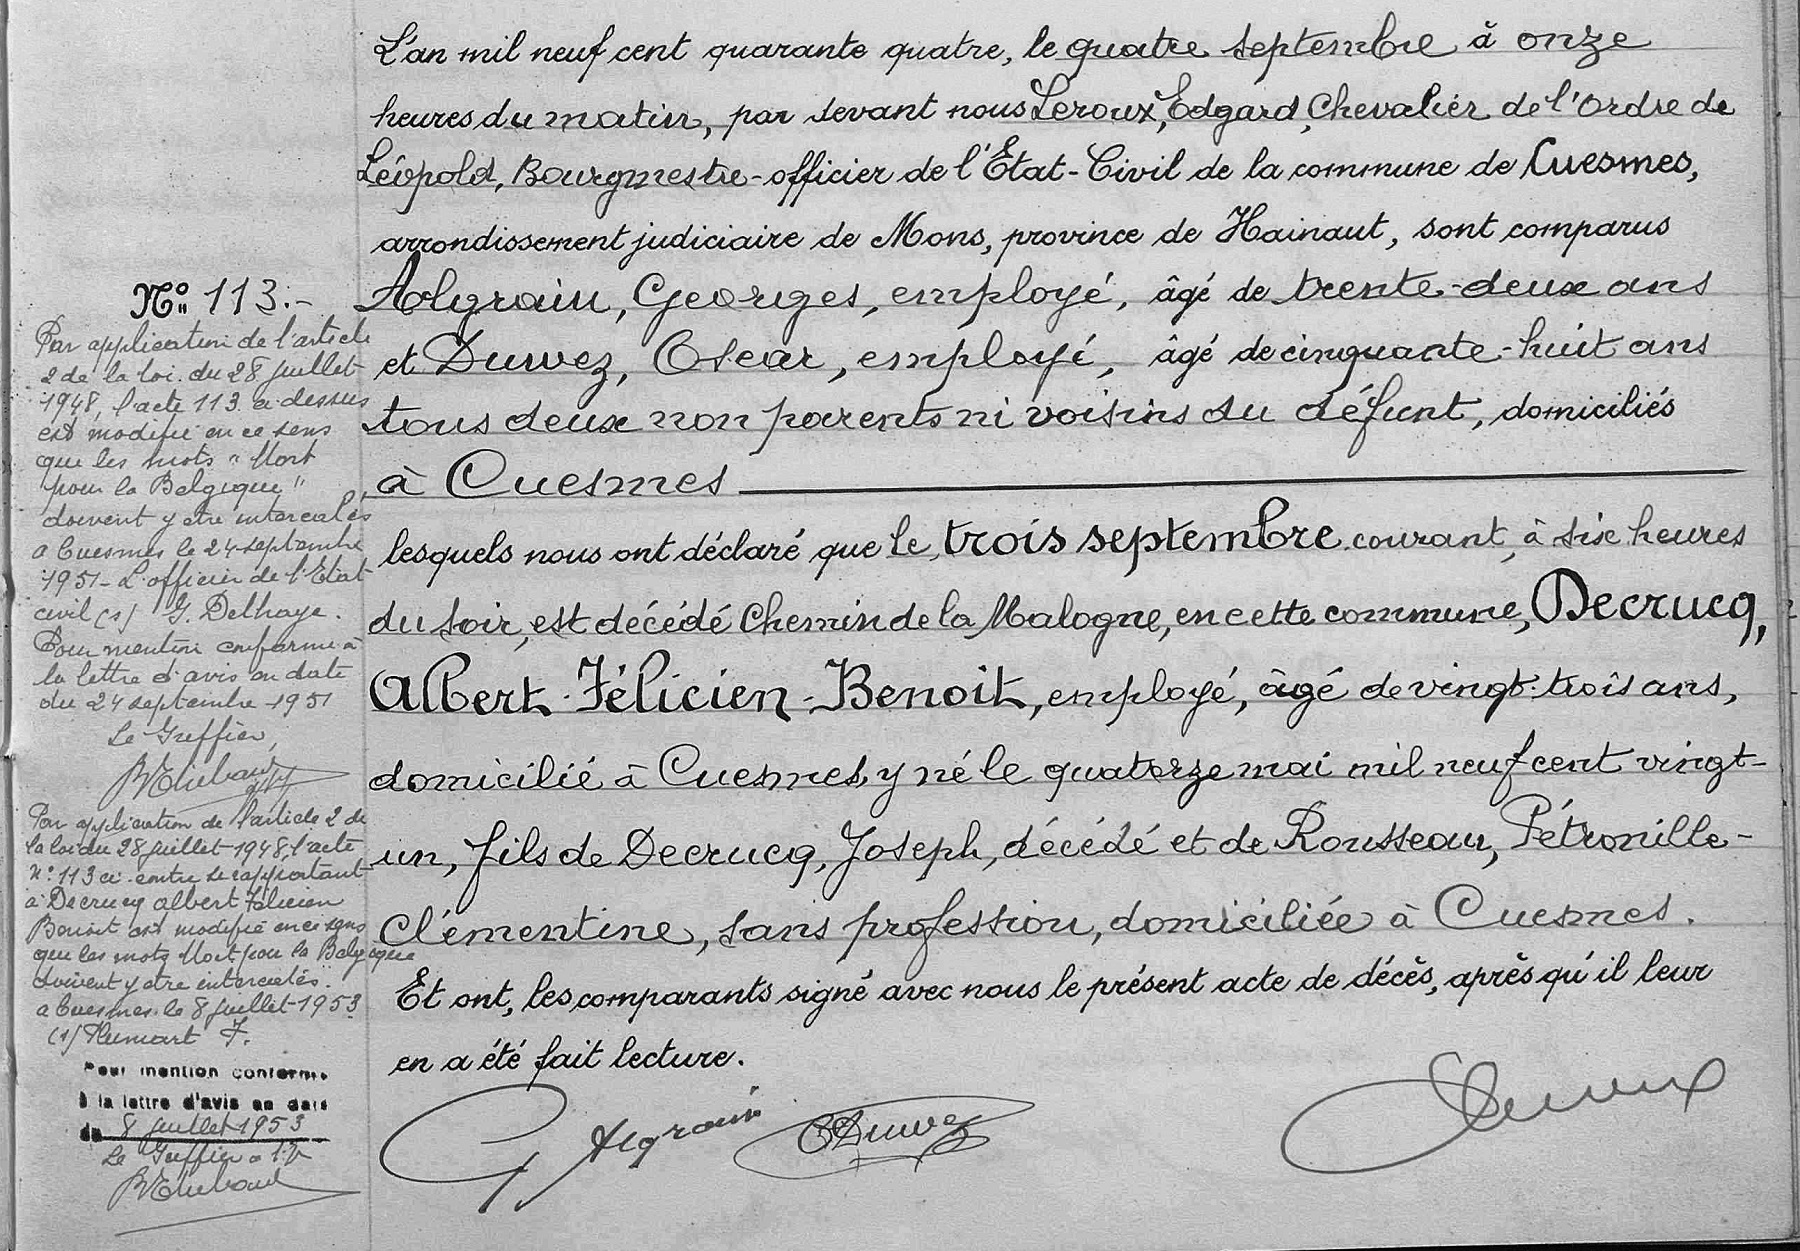 L'an mil neuf cent quarante quatre, le quatre septembre à onze
heures du matin, par devant nous Leroux, Edgard, Chevalier de l'Ordre de
Léopold, Bourgmestre-officier de l'Etat-Civil de la commune de Cuesmes,
arrondissement judiciaire de Mons, province de Hainaut, sont comparus
Algrain, Georges, employé, âgé de trente-deux ans
et Duwez, Oscar, employé, âgé de cinquante-huit ans
tous deux non parents ni voisins du défunt, domiciliés
à Cuesmes
lesquels nous ont déclaré que le trois septembre courant, à six heures
du soir, est décédé Chemin de la Malogne, en cette commune, Decrucq,
Albert-Félicien-Benoit, employé, âgé de vingt-trois ans,
domicilié à Cuesmes, y né le quatorze mai mil neuf cent vingt-
un, fils de Decrucq, Joseph, décédé et de Rousseau, Pétronille-
Clémentine, sans profession, domiciliée à Cuesmes.
Et ont, les comparants signé avec nous le présent acte de décès, après qu'il leur
en a été fait lecture.
G Algrain
ODuwez
Leroux
No 113.-
Par application de l'article
2 de la loi du 28 juillet
1948, l'acte 113 ci dessus
est modifié en ce sens
que les mots "Mort
pour la Belgique"
doivent y être intercalés
a Cuesmes le 24 septembre
1951 - L'officier de l'Etat
civil (s) G. Delhaye.
Pour mention conforme à
la lettre d'avis en date
du 24 septembre 1951
Le Greffier,
Par application de l'article 2 de
la loi du 28 juillet 1948, l'acte
N° 113 ci-contre se rapportant
à Decrucq Albert Félicien
Benoit est modifié en ce sens
que les mots Mort pour la Belgique
doivent y être intercalés.
a Cuesmes le 8 juillet 1953
(s) Plumart F.
Pour mention conforme
à la lettre d'avis en date
du 8 juillet 1953
Le Greffier